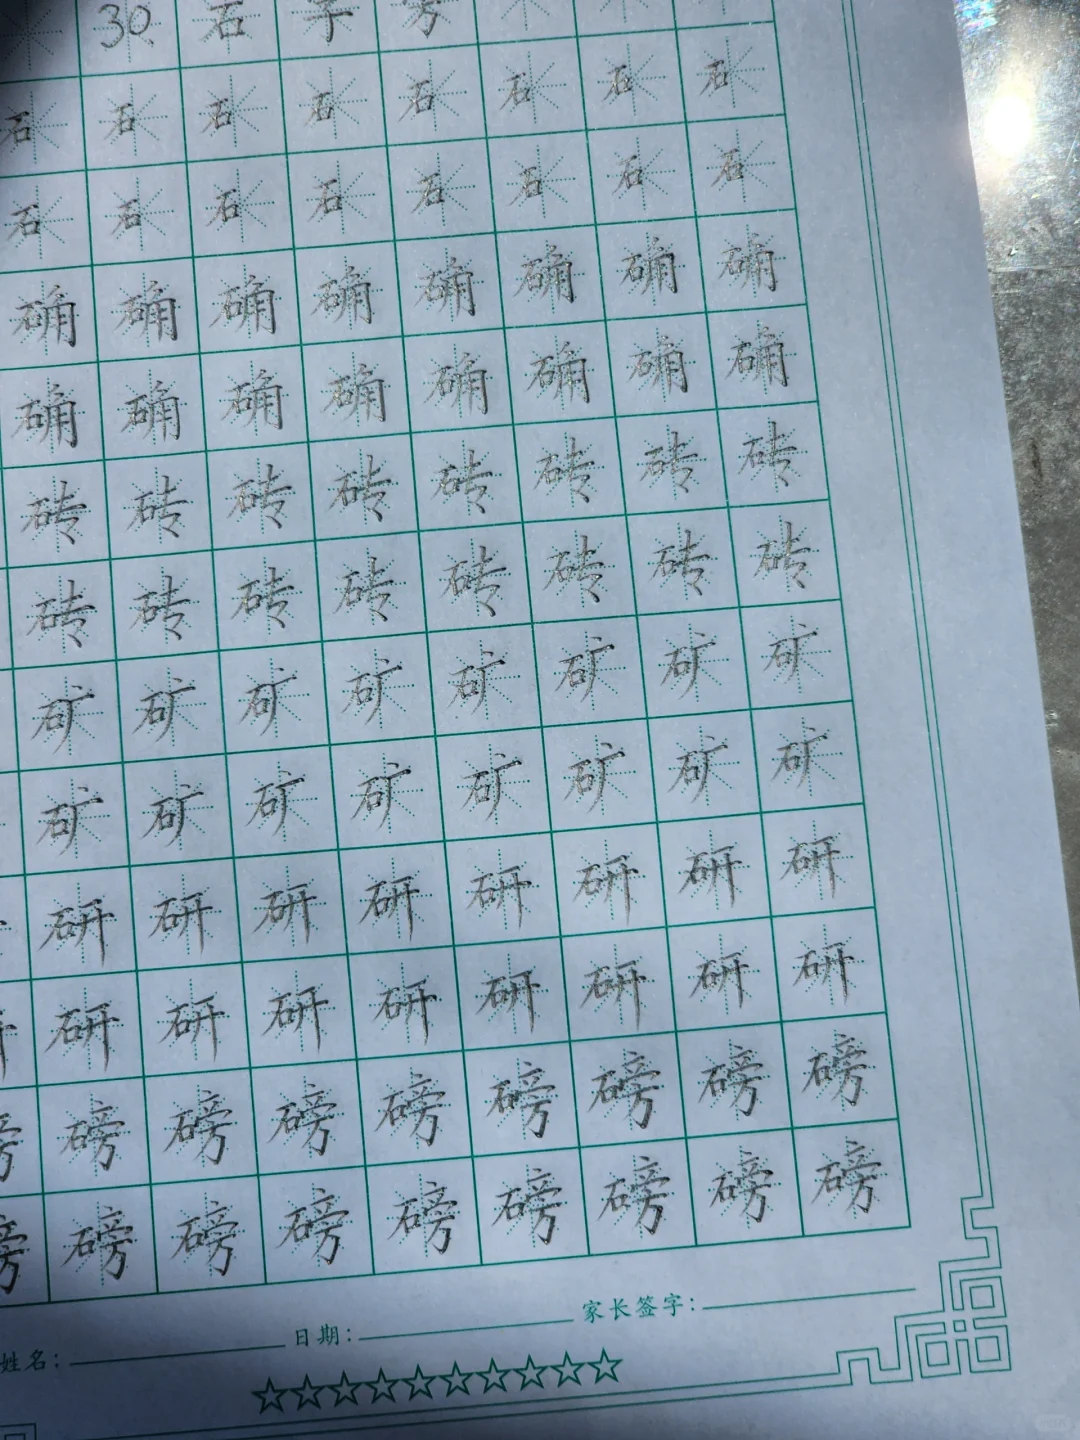 30 石 字 旁
石 石 石 石 石 石 石 石
石 石 石 石 石 石 石 石
确 确 确 确 确 确 确 确
确 确 确 确 确 确 确 确
砖 砖 砖 砖 砖 砖 砖 砖
砖 砖 砖 砖 砖 砖 砖 砖
矿 矿 矿 矿 矿 矿 矿 矿
矿 矿 矿 矿 矿 矿 矿 矿
研 研 研 研 研 研 研 研
研 研 研 研 研 研 研 研
磅 磅 磅 磅 磅 磅 磅 磅
磅 磅 磅 磅 磅 磅 磅 磅
姓名： 日期： 家长签字：